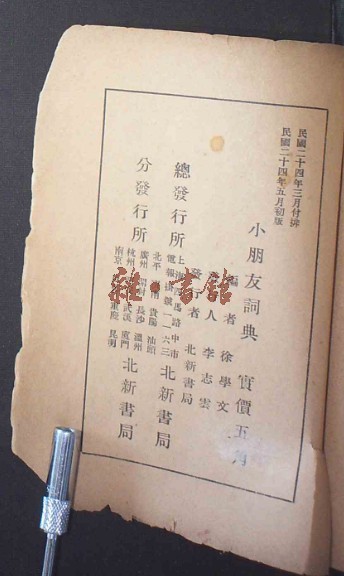 民國二十四年三月付排
民國二十四年五月初版
小朋友詞典 實價五角
編者 徐學文
人 李志雲
發行者 北新書局
總發行所 上海四馬路中市 電報掛號一一六三 北新書局
分發行所 北平 廣州 開封 貴陽 長沙 汕頭 溫州
南京 杭州 武漢 重慶 廈門 昆明 北新書局
雜·書館